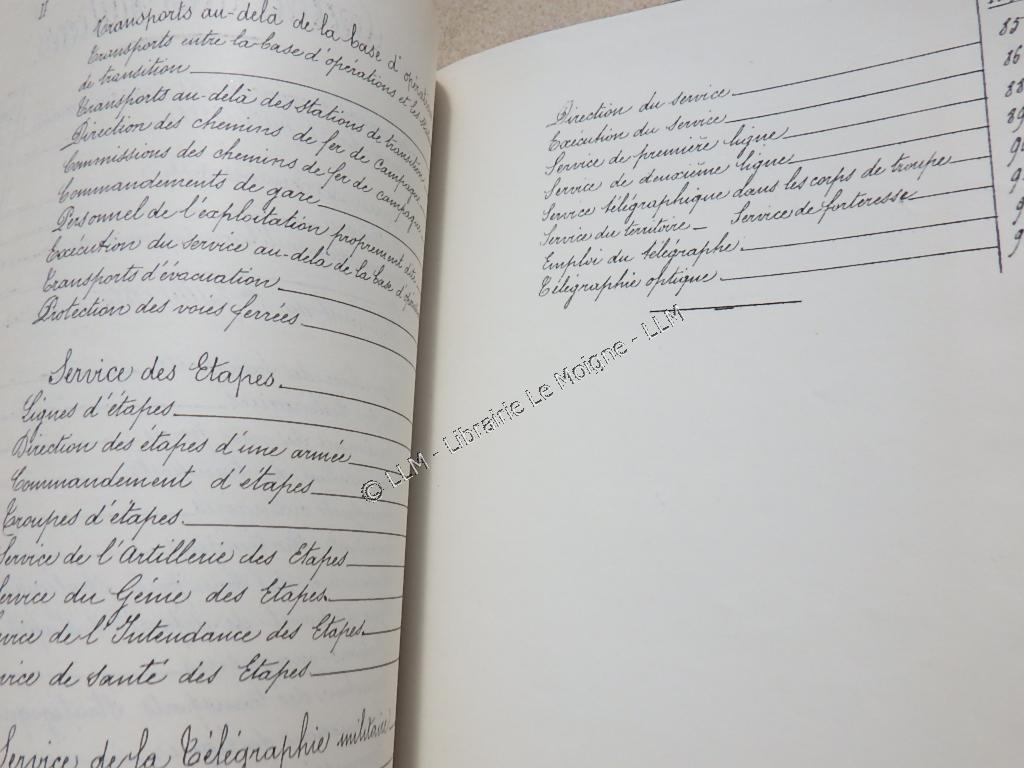 Transports au-delà de la base d'opérations
Transports entre la base d'opérations et les
de transition
Transports au-delà des stations de transition
Direction des chemins de fer de campagne
Commissions des chemins de fer de campagne
Commandements de gare
Personnel de l'exploitation proprement dite
Exécution du service au-delà de la base d'
Transports d'évacuation
Protection des voies ferrées
Service des Etapes
Lignes d'étapes
Direction des étapes d'une armée
Commandement d'étapes
Troupes d'étapes
Service de l'Artillerie des Etapes
Service du Génie des Etapes
vice de l'Intendance des Etapes
vice de santé des Etapes
Service de la Télégraphie militaire
Direction du service 85
Exécution du service 86
Service de première ligne 88
Service de deuxième ligne 89
Service télégraphique dans les corps de troupe
Service du territoire - Service de forteresse
Emploi du télégraphe
Télégraphie optique
© LLM - Librairie Le Moigne - LLM